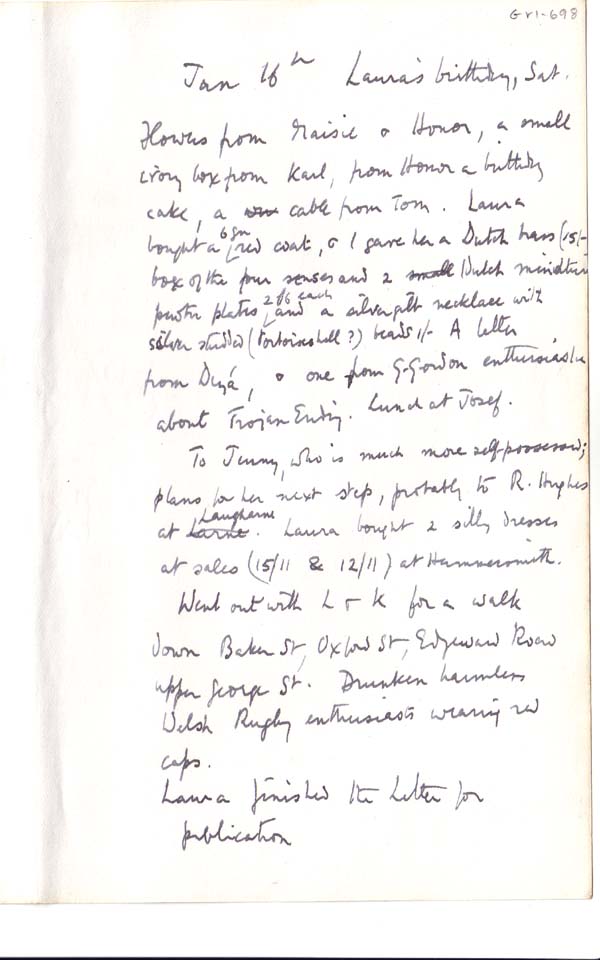 GRI-698
Jan 16th Laura's birthday, Sat.
Flowers from Maisie & Honor, a small
ivory box from Karl, from Honor a birthday
cake, a cable from Tom. Laura
bought a 6 gn red coat, & I gave her a Dutch brass (15/-
box of the four senses and 2 small Dutch miniature
pewter plates 2/6 each and a silver gilt necklace with
silver studded (tortoiseshell?) beads 1/- A letter
from Deyá, & one from G. Gordon enthusiastic
about Trojan Ending. Lunch at Josef.
To Jenny, who is much more self-possessed;
plans for her next step, probably to R. Hughes
at Larne Laugharne. Laura bought 2 silly dresses
at sales (15/11 & 12/11) at Hammersmith.
Went out with L & K for a walk
down Baker St, Oxford St, Edgeward Road
upper George St. Drunken harmless
Welsh Rugby enthusiasts wearing red
caps.
Laura finished the Letter for
publication